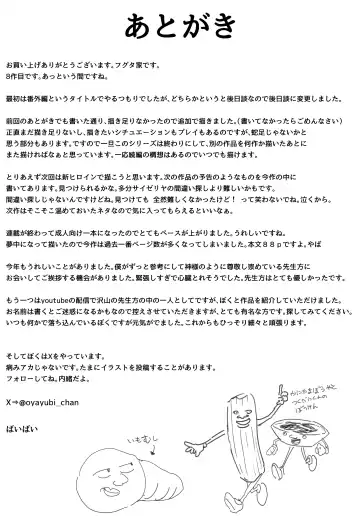 あとがき
お買い上げありがとうございます。フグタ家です。
8作目です。あっという間ですね。
最初は番外編というタイトルでやるつもりでしたが、どちらかというと後日談なので後日談に変更しました。
前回のあとがきでも書いた通り、描き足りなかったので追加で描きました。(書いてなかったらごめんなさい)
正直まだ描き足りないし、描きたいシチュエーションもプレイもあるのですが、蛇足じゃないかと
思う部分もあります。ですので一旦このシリーズは終わりにして、別の作品を何作か描いたあとに
また描ければなぁと思っています。一応続編の構想はあるのでいつでも描けます。
とりあえず次回は新ヒロインで描こうと思います。次の作品の予告のようなものを今作の中に
書いてあります。見つけられるかな。多分サイゼリヤの間違い探しより難しいかもです。
間違い探しじゃないんですけどね。見つけても 全然難しくなかったけど! って笑わないでね。泣くから。
次作はそこそこ温めておいたネタなので気に入ってもらえるといいなぁ。
連載が終わって成人向け一本になったのでとてもペースが上がりました。うれしいですね。
夢中になって描いたので今作は過去一番ページ数が多くなってしまいました。本文88pですよ。やば
今年もうれしいことがありました。僕がずっと参考にして神様のように尊敬し崇めている先生方に
お会いしてご挨拶する機会がありました。緊張しすぎて心臓とれそうでした。先生方はとても優しかったです。
もう一つはyoutubeの配信で沢山の先生方の中の一人としてですが、ぼくと作品を紹介していただけました。
お名前は書くとご迷惑になるかもなので控えさせていただきますが、とても有名な方です。探してみてください。
いつも何かで落ち込んでいるぼくですが元気がでました。これからもひっそり細々と頑張ります。
そしてぼくはXをやっています。
病みアカじゃないです。たまにイラストを投稿することがあります。
フォローしてね。内緒だよ。
X⇒@oyayubi_chan
ばいばい
いもむし